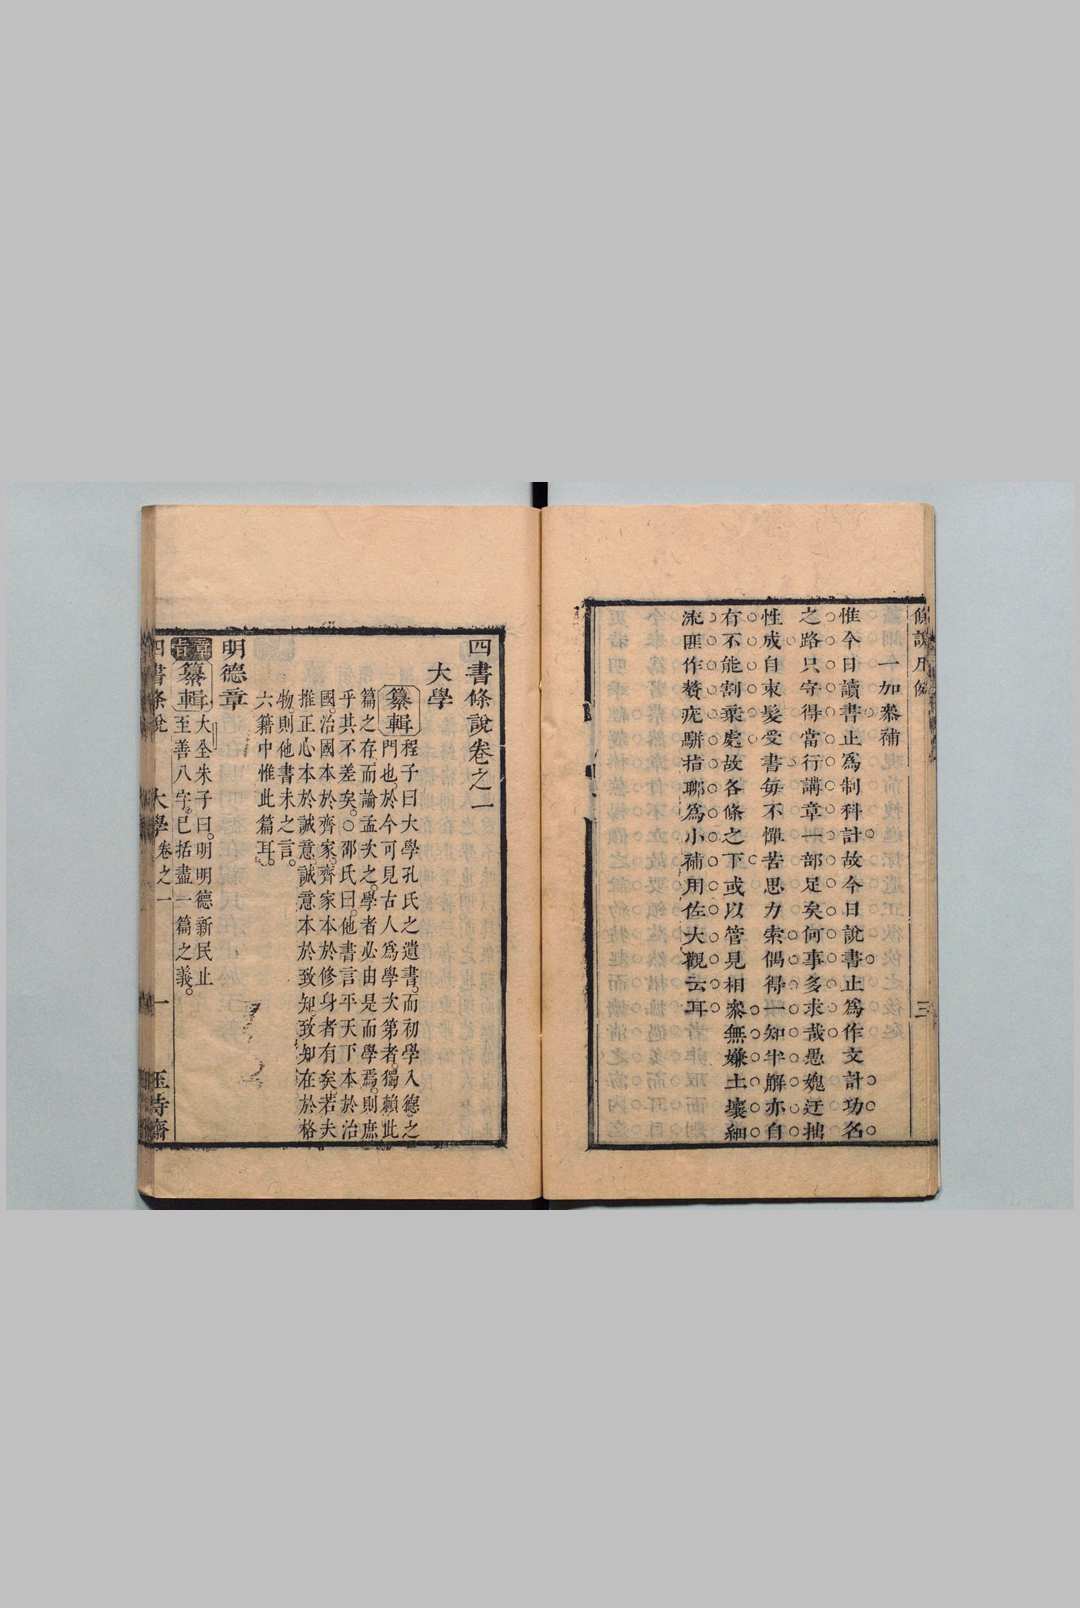 條說凡例
三
一加叅補
惟今日讀書止爲制科計故今日說書正爲作文計功名
之路只守得當行講章一部足矣何事多求哉愚媿迂拙
性成自束髮受書每不憚苦思力索偶得一知半解亦自
有不能割棄處故各條之下或以管見相叅無嫌土壤細
流匪作贅疣駢拇聊爲小補用佐大觀云耳
四書條說卷之一
大學
纂輯程子曰大學孔氏之遺書。而初學入德之
門也。於今可見古人爲學次第者獨賴此
篇之存而論孟次之。學者必由是而學焉。則庶
乎其不差矣。○邵氏曰。他書言平天下本於治
國。治國本於齊家。齊家本於修身者有矣若夫
推正心本於誠意誠意本於致知致知在於格
物。則他書未之言。
六籍中惟此篇耳。
明德章
章旨
纂輯大全朱子曰。明明德新民止
至善八字。已括盡一篇之義。
四書條說 大學卷之一 一